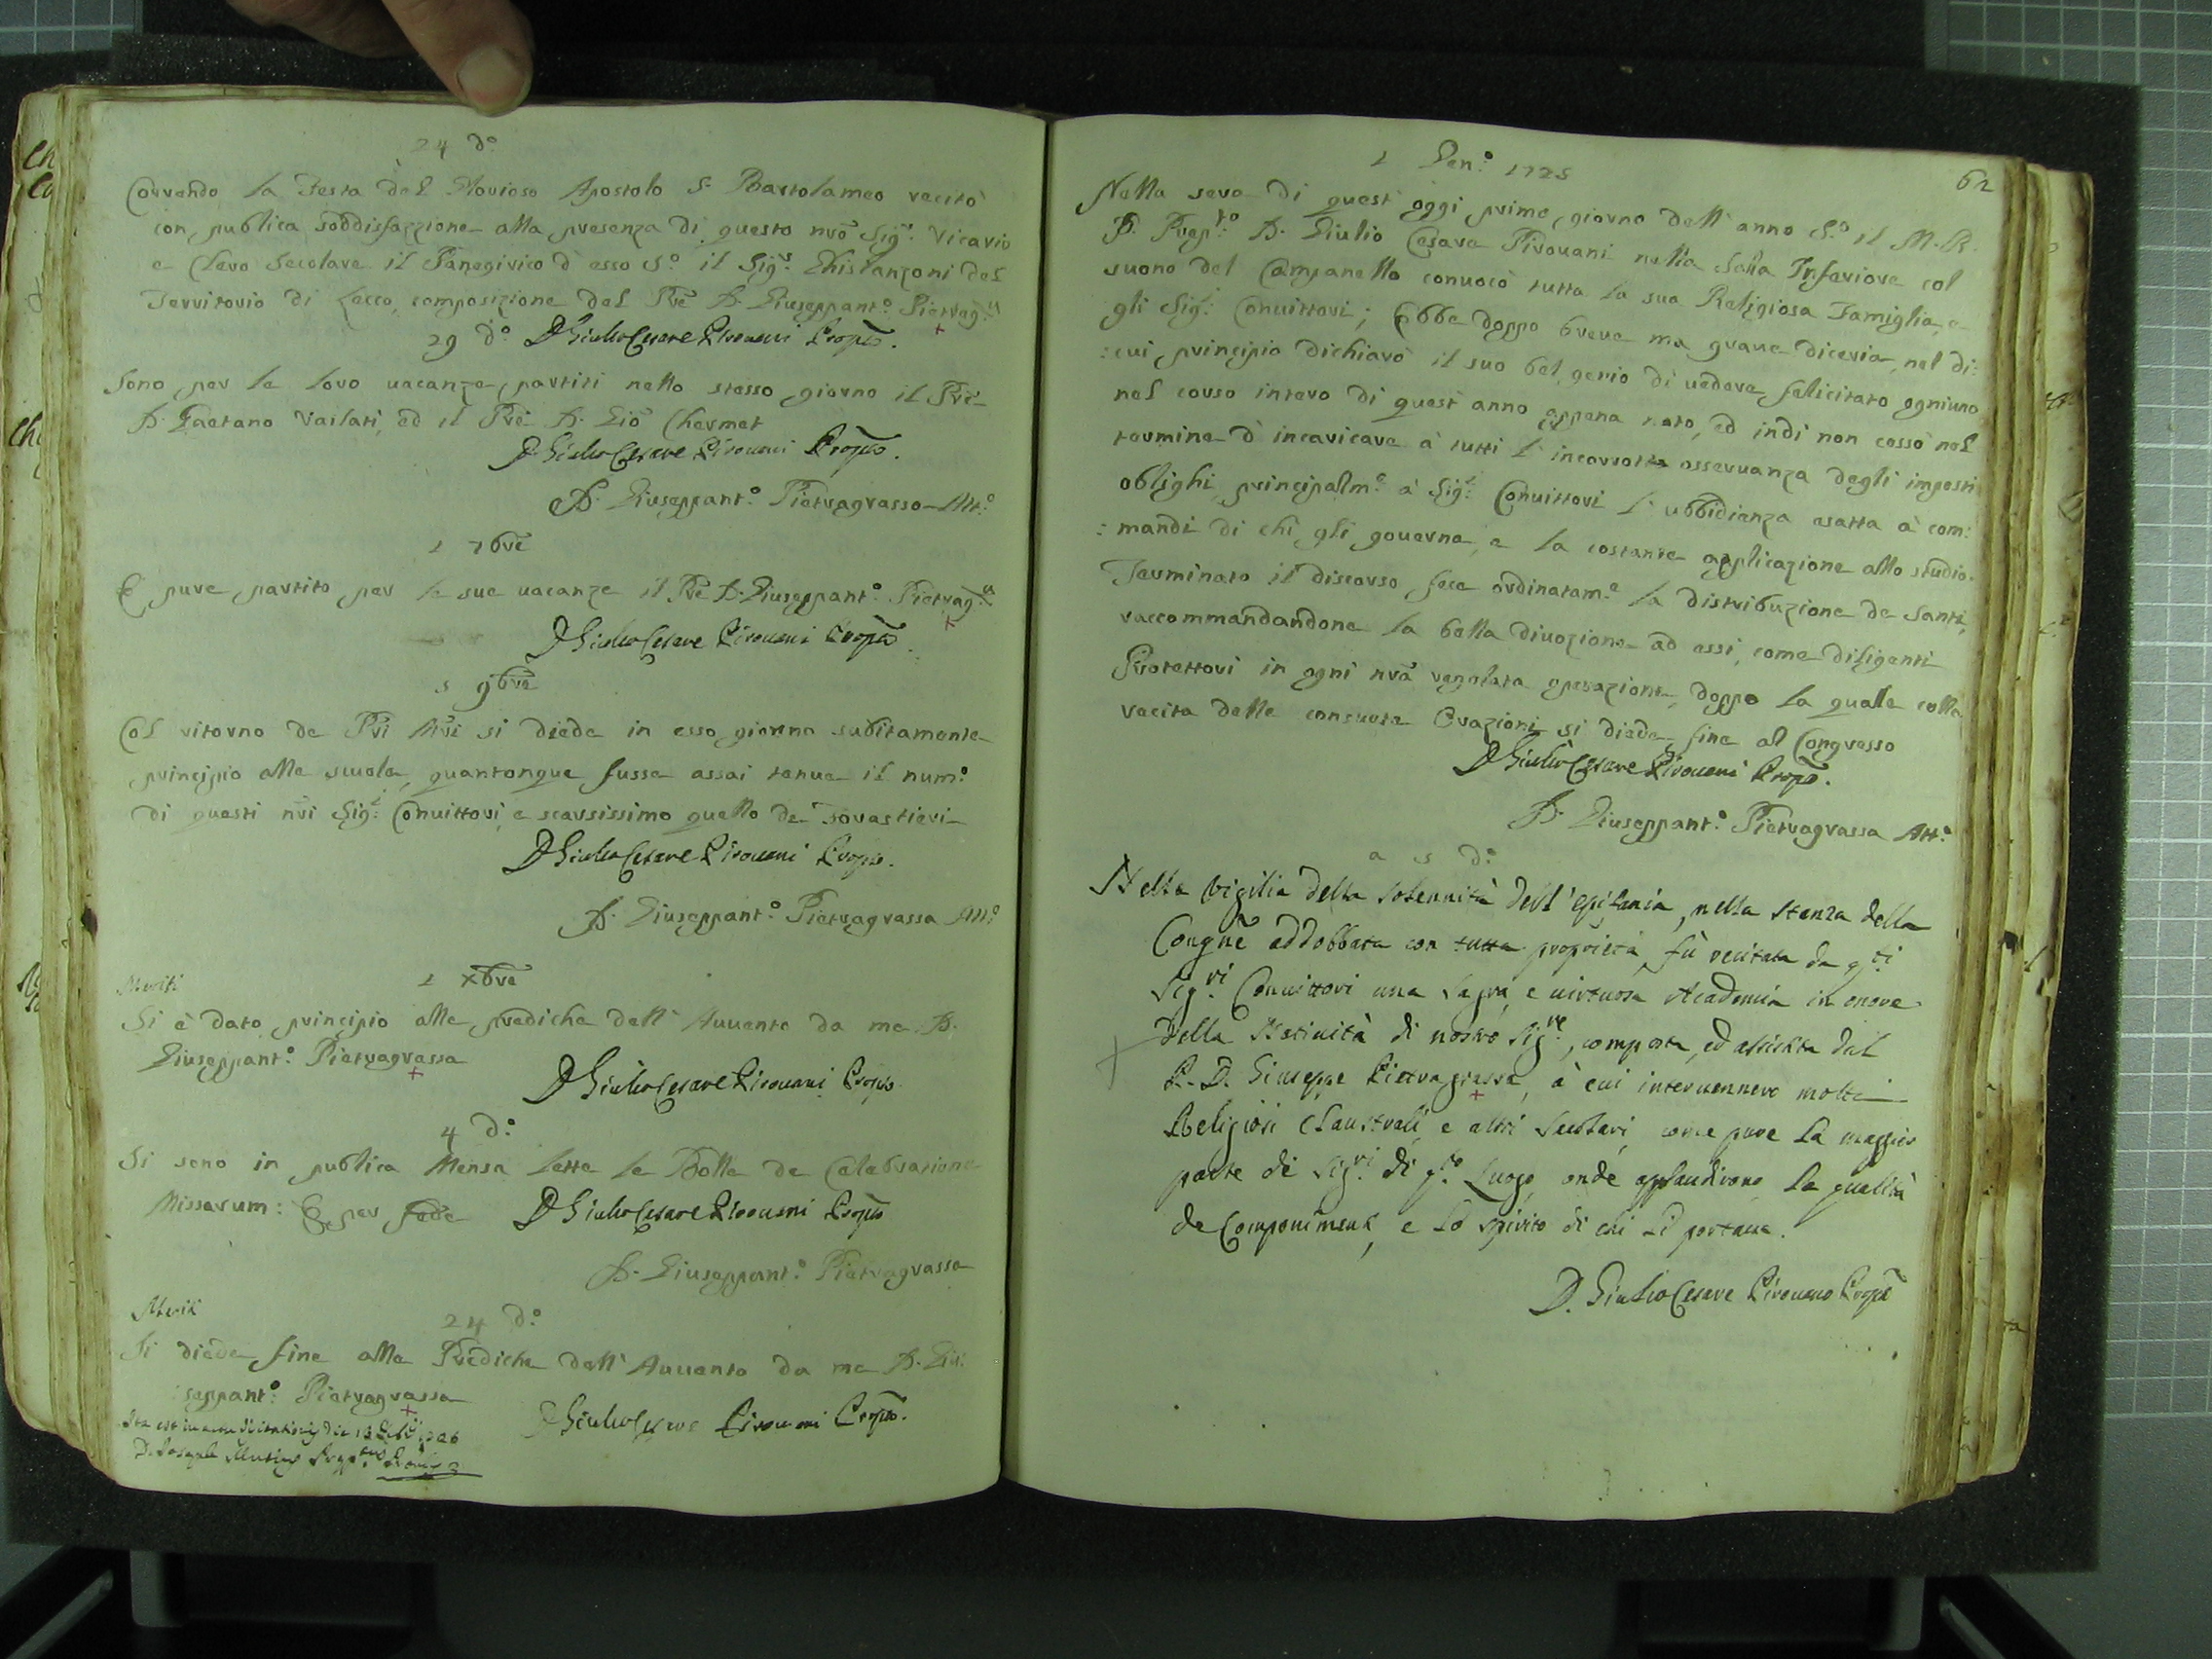 24 d.º
Correndo la Festa del Glorioso Apostolo S. Bartolameo recitò
con publica soddisfazzione alla presenza di questo nrõ Sig.r Vicario
e Clero Secolare il Panegirico d' esso S.º il Sig.r Ghislanzoni del
Territorio di Lecco, composizione del Prẽ D. Giuseppant.º Pietrag.sa
29 d.º D Giulio Cesare Pirovani Propto.
Sono per le loro uacanze partiti nello stesso giorno il Prẽ
D. Gaetano Vailati, ed il Prẽ D. Giõ Chermet
D Giulio Cesare Pirovani Propto.
D. Giuseppant.º Pietragrassa Att.º
1 7brẽ
È pure partito per le sue uacanze il Prẽ D. Giuseppant.º Pietrag.sa
D Giulio Cesare Pirovani Propto
5 9brẽ
Col ritorno de Pri Mri si diede in esso giorno subitamente
principio alle scuole, quantonque fusse assai tenue il num.º
di questi nri Sig.i Conuittori, e scarsissimo quello de Forastieri
D Giulio Cesare Pirovani Propto.
D. Giuseppant.º Pietragrassa Att.º
Meriti
1 Xbre
Si è dato principio alle prediche dell' Auuento da me D.
Giuseppant.º Pietragrassa
D Giulio Cesare Pirovani Propto
4 d.º
Si sono in publica Mensa lette le Bolle de Celebratione
Missarum: E per fede D Giulio Cesare Pirovani Propto
D. Giuseppant.º Pietragrassa
Meriti
24 d.º
Si diede fine alle Prediche dell' Auuento da me D. Giu:
seppant.º Pietragrassa
D Giulio Cesare Pirovani Propto.
Ita est in actu Visitationis die 13
D. Joseph
62
1 Gen.º 1725
Nella sera di quest' oggi primo giorno dell' anno S.º il M. R.
P. Prep.to D. Giulio Cesare Pirouani nella Salla Inferiore col
suono del Campanello conuocò tutta la sua Religiosa Famiglia, e
gli Sig.i Conuittori; Ebbe doppo breue ma graue diceria, nel di:
:cui principio dichiarò il suo bel genio di uedere felicitato ogniuno
nel corso intero di quest' anno appena nato, ed indi non cessò nel
termine d' incaricare à tutti l' incorrotta osseruanza degli imposti
oblighi, principalm.e à Sig.i Conuittori l' ubbidienza esatta à com:
:mandi di chi gli gouerna, e la costante applicazione allo studio.
Terminato il discorso fece ordinatam.e la distribuzione de Santi,
raccommandandone la bella diuozione ad essi, come diligenti
Protettori in ogni nrã regolata operazione, doppo la quale colla
recita delle consuete Orazioni si diede fine al Congresso
D Giulio Cesare Pirovani Propto.
D. Giuseppant.º Pietragrassa Att.º
a 5 d.º
Nella vigilia della solennità dell' epifania, nella stanza della
Congnẽ addobbata con tutta proprietà, fù recitata da q.ti
Sig.ri Conuittori una sagra, e uirtuosa Academia in onore
della Natiuità di nostro Sig.re, composta, ed assistita dal
P. D. Giuseppe Pietragrassa, à cui interuennero molti
Religiosi Claustrali, e altri Secolari, come pure la maggior
parte de Sig.ri di q.to Luogo, onde applaudirono la qualità
de Componimenti, e lo spirito di chi li portaua.
D. Giulio Cesare Pirouano Propto